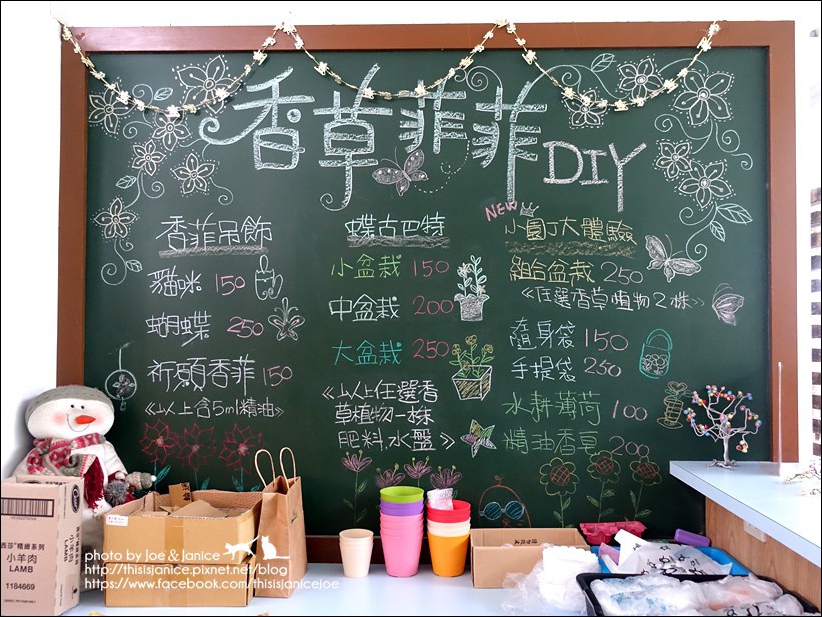 香草菲菲 DIY
香菲吊飾
貓咪 150
蝴蝶 250
祈願香菲 150
《以上含5ml精油》
蝶古巴特
小盆栽 150
中盆栽 200
大盆栽 250
《以上任選香
草植物一株
肥料,水盤》
NEW
小園丁大體驗
組合盆栽 250
《任選香草植物2株》
隨身袋 150
手提袋 250
水耕薄荷 100
精油香草 200
西莎®精緻系列
小羊肉
1184669
LAMB
LAMB
photo by Joe & Janice
http://thisisjanice.pixnet.net/blog
https://www.facebook.com/thisisjaniceJoe